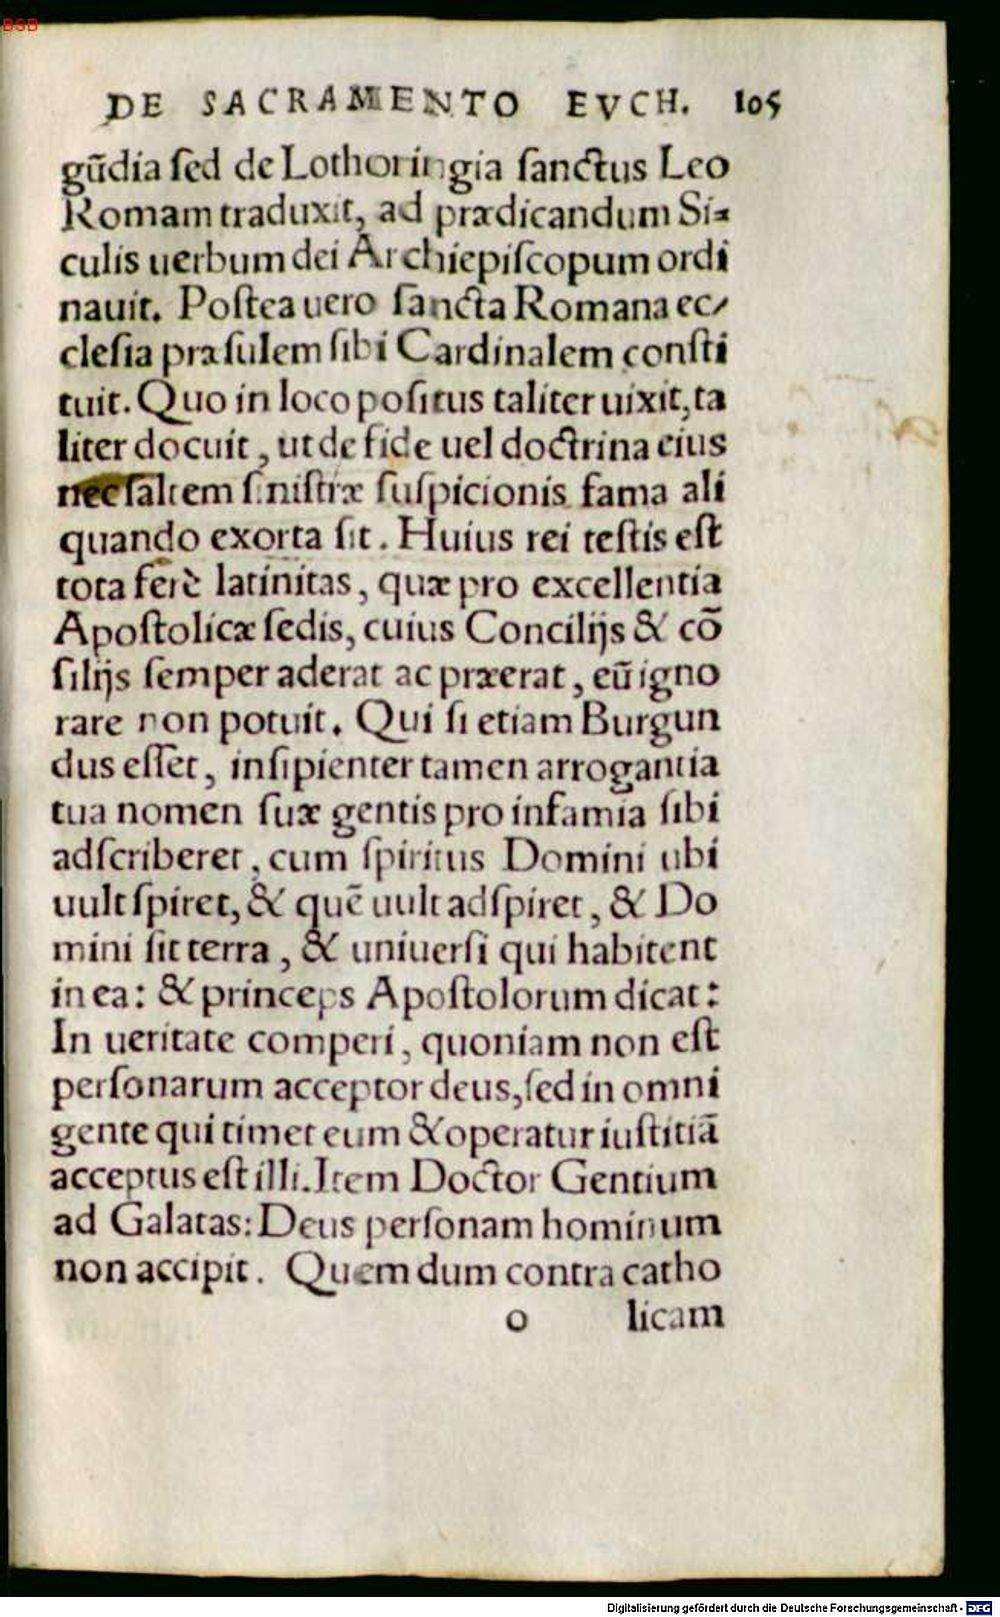 BSB
DE SACRAMENTO EVCH. 105
gūdia ſed de Lothoringia ſanctus Leo
Romam traduxit, ad prædicandum Si⸗
culis uerbum dei Archiepiſcopum ordi
nauit. Poſtea uero ſancta Romana ec/
cleſia præſulem ſibi Cardinalem conſti
tuit. Quo in loco poſitus taliter uixit, ta
liter docuit, ut de fide uel doctrina eius
nec ſaltem ſiniſtræ ſuſpicionis fama ali
quando exorta ſit. Huius rei teſtis eſt
tota ferè latinitas, quæ pro excellentia
Apoſtolicæ ſedis, cuius Concilijs & cō
ſilijs ſemper aderat ac præerat, eū igno
rare non potuit. Qui ſi etiam Burgun
dus eſſet, inſipienter tamen arrogantia
tua nomen ſuæ gentis pro infamia ſibi
adſcriberet, cum ſpiritus Domini ubi
uult ſpiret, & quē uult adſpiret, & Do
mini ſit terra, & uniuerſi qui habitent
in ea: & princeps Apoſtolorum dicat:
In ueritate comperi, quoniam non eſt
perſonarum acceptor deus, ſed in omni
gente qui timet eum & operatur iuſtitiā
acceptus eſt illi. Item Doctor Gentium
ad Galatas: Deus perſonam hominum
non accipit. Quem dum contra catho
o licam
Digitalisierung gefördert durch die Deutsche Forschungsgemeinschaft - DFG